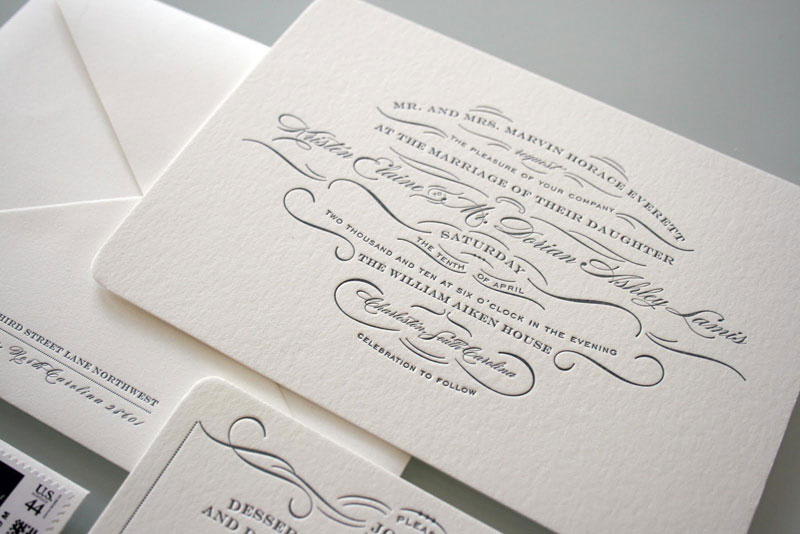 MR. AND MRS. MARVIN HORACE EVERETT
request
THE PLEASURE OF YOUR COMPANY
AT THE MARRIAGE OF THEIR DAUGHTER
Kristin Elaine & Mr. Dorian Ashley Lamis
SATURDAY
THE TENTH OF APRIL
TWO THOUSAND AND TEN AT SIX O'CLOCK IN THE EVENING
THE WILLIAM AIKEN HOUSE
Charleston South Carolina
CELEBRATION TO FOLLOW
THIRD STREET LANE NORTHWEST
North Carolina 28601
U.S.
44
PLEAS
JO
DESSER
AND D